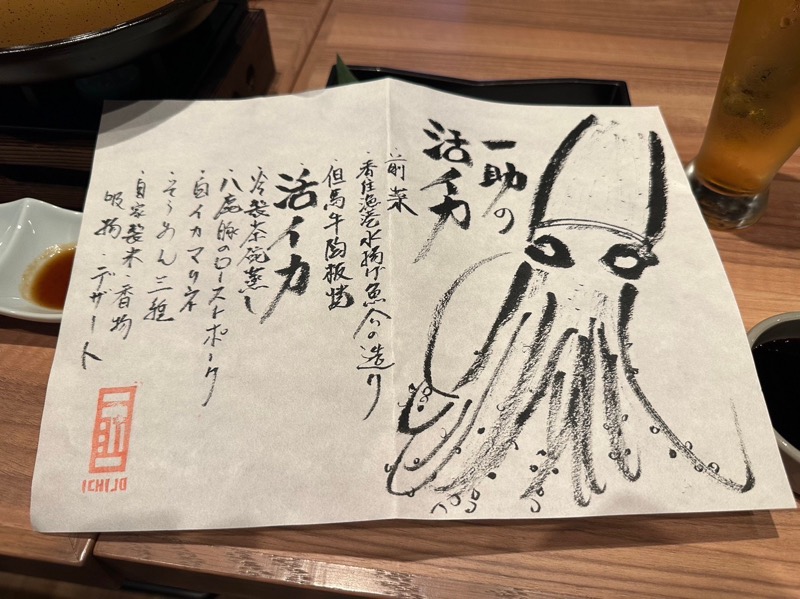 一助の
活イカ
・前菜
・香住漁港水揚げ魚介の造り
・但馬牛陶板焼
・活イカ
・冷製茶碗蒸し
・八鹿豚のローストポーク
・白イカマリネ
・そうめん三種
・自家製米・香物
吸物・デザート
ICHIJO